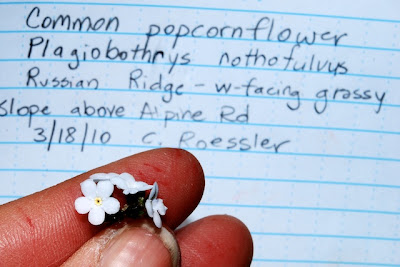 Common popcornflower
Plagiobothrys nothofulvus
Russian Ridge - w-facing grassy
slope above Alpine Rd
3/18/10 C. Roessler